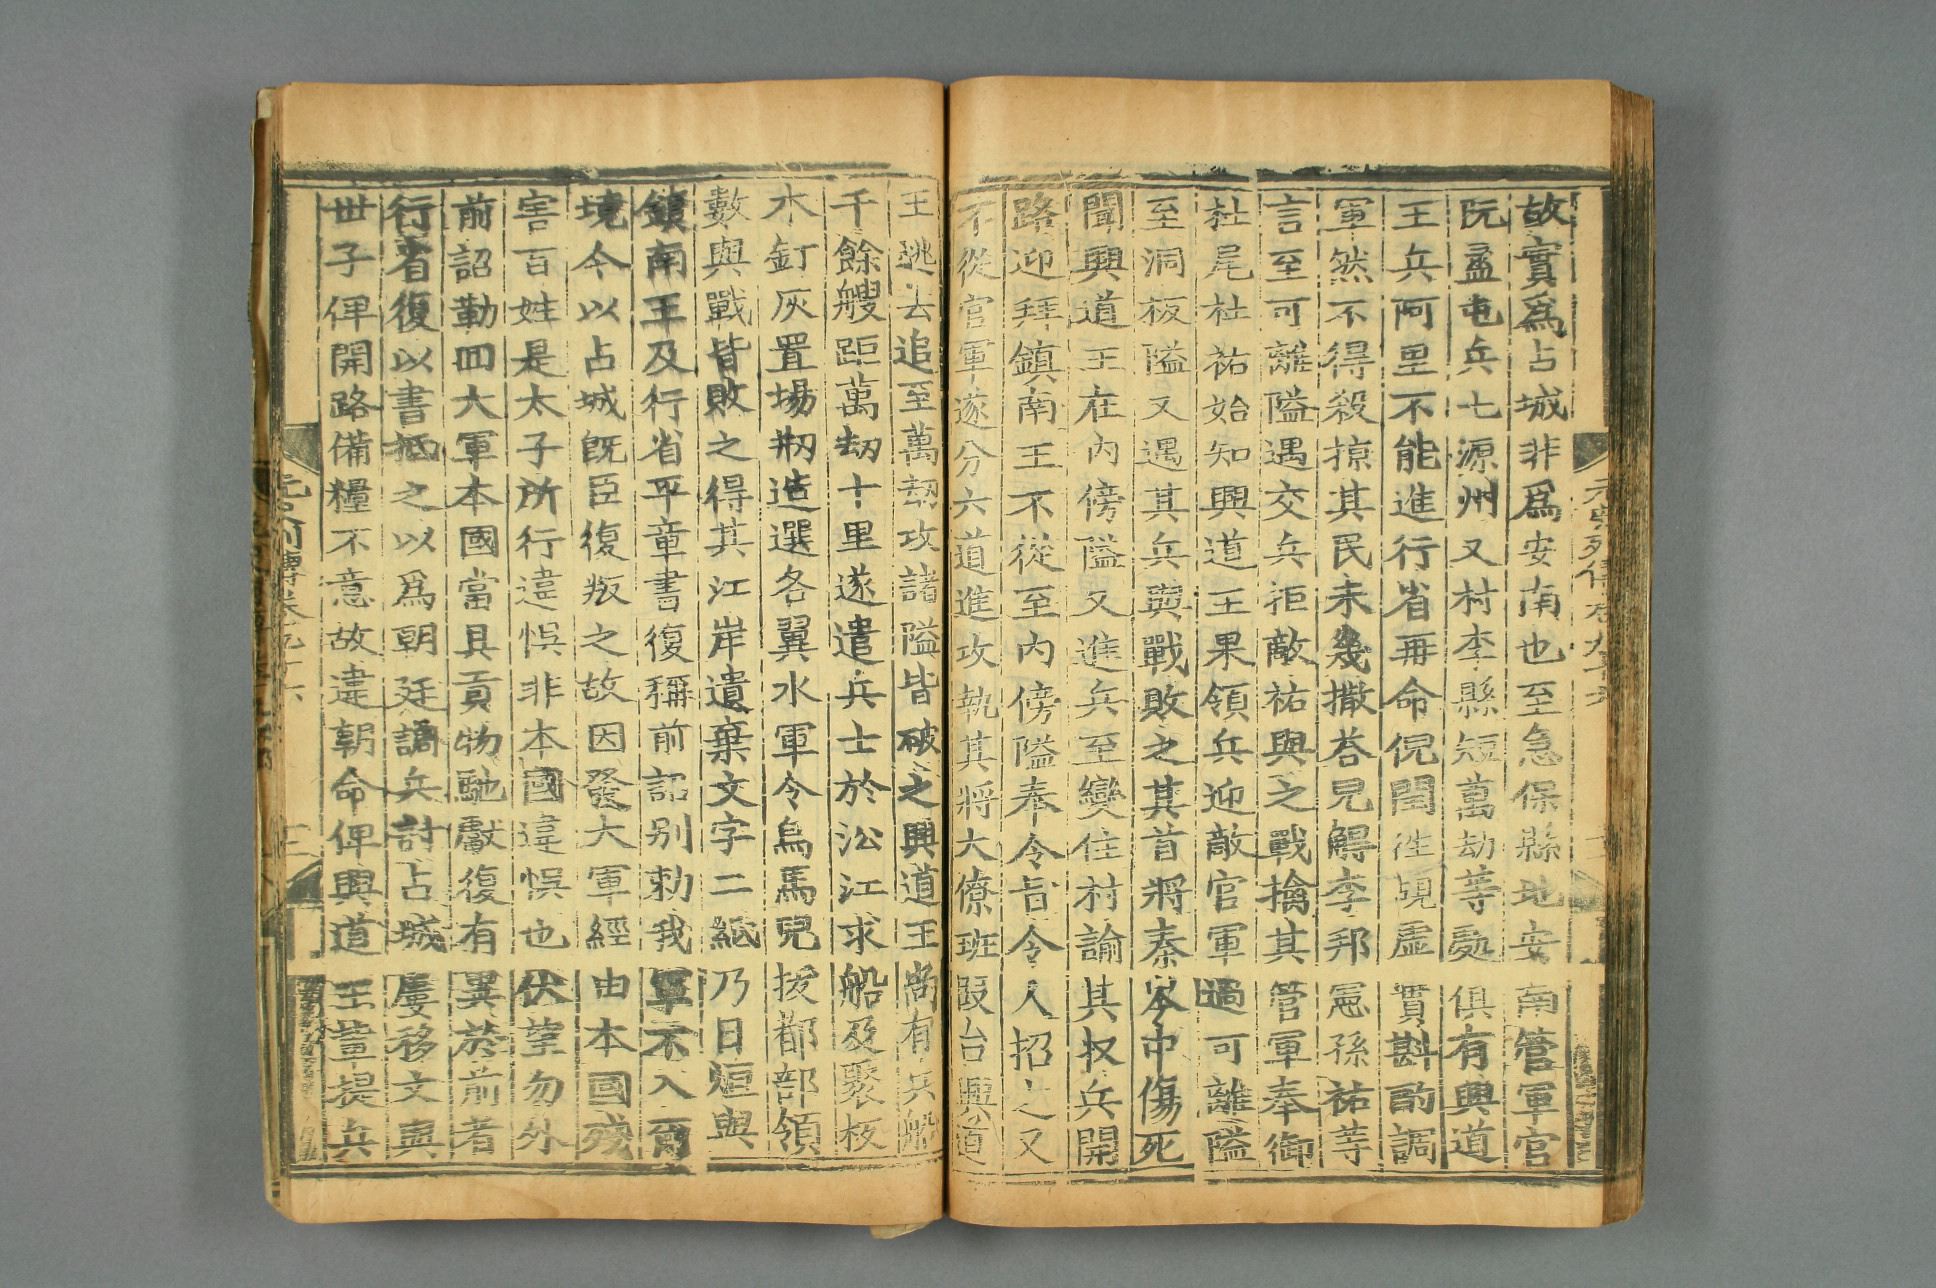 故實爲占城非爲安南也至急保縣地安南管軍官
阮盝屯兵七源州又村李縣短萬劫等處俱有興道
王兵阿里不能進行省再命倪閏往覘虛實斟酌調
軍然不得殺掠其民未幾撒荅兒䚟李邦憲孫祐等
言至可離隘遇交兵拒敵祐與之戰擒其管軍奉御
杜尾杜祐始知興道王果領兵迎敵官軍過可離隘
至洞板隘又遇其兵與戰敗之其首將秦岑中傷死
聞興道王在內傍隘又進兵至變住村諭其収兵開
路迎拜鎮南王不從至內傍隘奉令旨令人招之又
不從官軍遂分六道進攻執其將大僚班段台興道
王逃去追至萬劫攻諸隘皆破之興道王尚有兵船
千餘艘距萬劫十里遂遣兵士於沿江求船及聚板
木釘灰置場剏造選各翼水軍令烏馬兒拔都部領
數與戰皆敗之得其江岸遺棄文字二紙乃日烜與
鎮南王及行省平章書復稱前詔别勑我軍不入爾
境今以占城旣臣復叛之故因發大軍經由本國殘
害百姓是太子所行違悞非本國違悞也伏望勿外
前詔勒回大軍本國當具貢物馳獻復有異於前者
行省復以書抵之以爲朝廷調兵討占城屢移文與
世子俾開路備糧不意故違朝命俾興道王輩提兵
元史列傳卷九十六